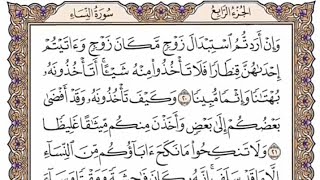 الجزء الرابع
سورة النساء
وَإِنْ أَرَدتُّمُ اسْتِبْدَالَ زَوْجٍ مَّكَانَ زَوْجٍ وَءَاتَيْتُمْ
إِحْدَىٰهُنَّ قِنطَارًا فَلَا تَأْخُذُوا۟ مِنْهُ شَيْـًٔا أَتَأْخُذُونَهُۥ
بُهْتَٰنًا وَإِثْمًا مُّبِينًا ٢٠ وَكَيْفَ تَأْخُذُونَهُۥ وَقَدْ أَفْضَىٰ
بَعْضُكُمْ إِلَىٰ بَعْضٍ وَأَخَذْنَ مِنكُم مِّيثَٰقًا غَلِيظًا
٢١ وَلَا تَنكِحُوا۟ مَا نَكَحَ ءَابَآؤُكُم مِّنَ النِّسَآءِ
إِلَّا مَا قَدْ سَلَفَ إِنَّهُۥ كَانَ فَٰحِشَةً وَمَقْتًا وَسَآءَ